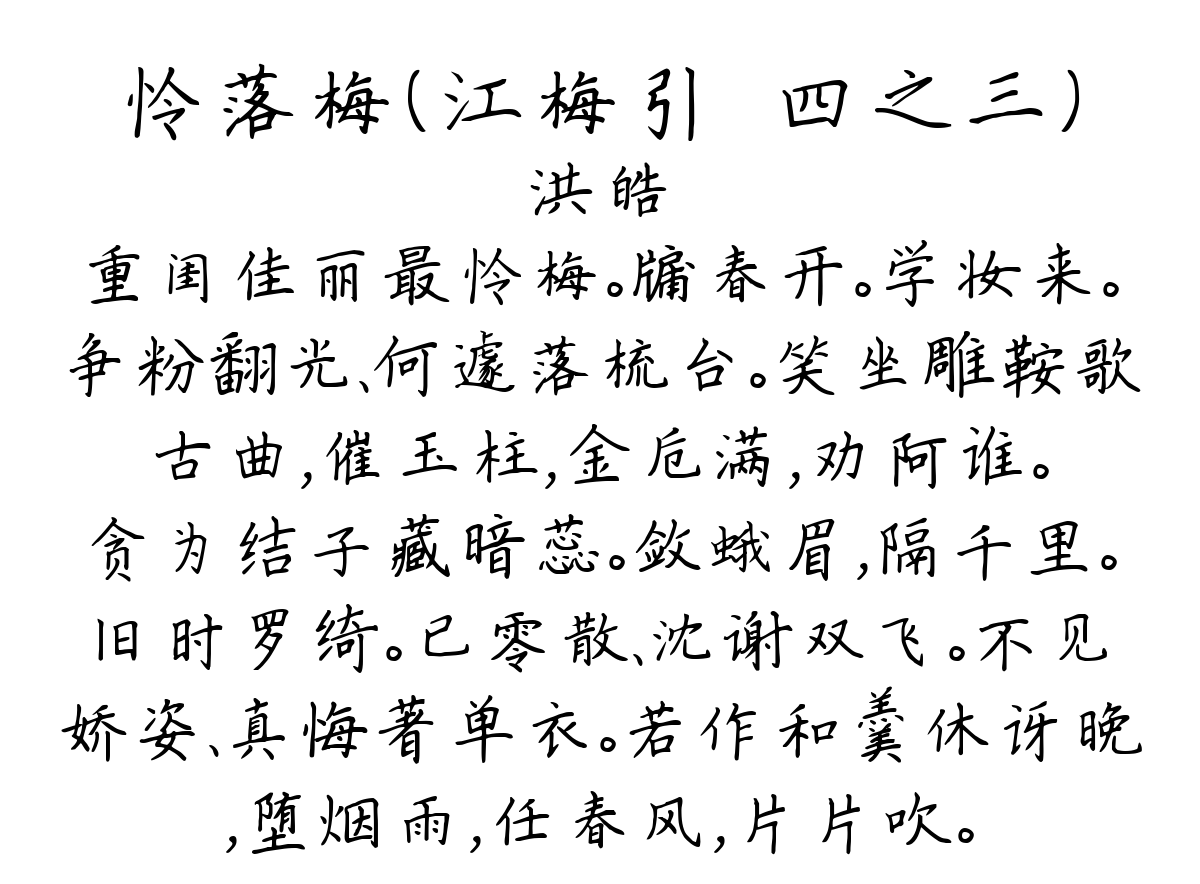 怜落梅(江梅引 四之三)
洪皓
重闺佳丽最怜梅。牖春开。学妆来。
争粉翻光、何遽落梳台。笑坐雕鞍歌
古曲,催玉柱,金卮满,劝阿谁。
贪为结子藏暗蕊。敛蛾眉,隔千里。
旧时罗绮。已零散、沈谢双飞。不见
娇姿、真悔著单衣。若作和羹休讶晚
,堕烟雨,任春风,片片吹。